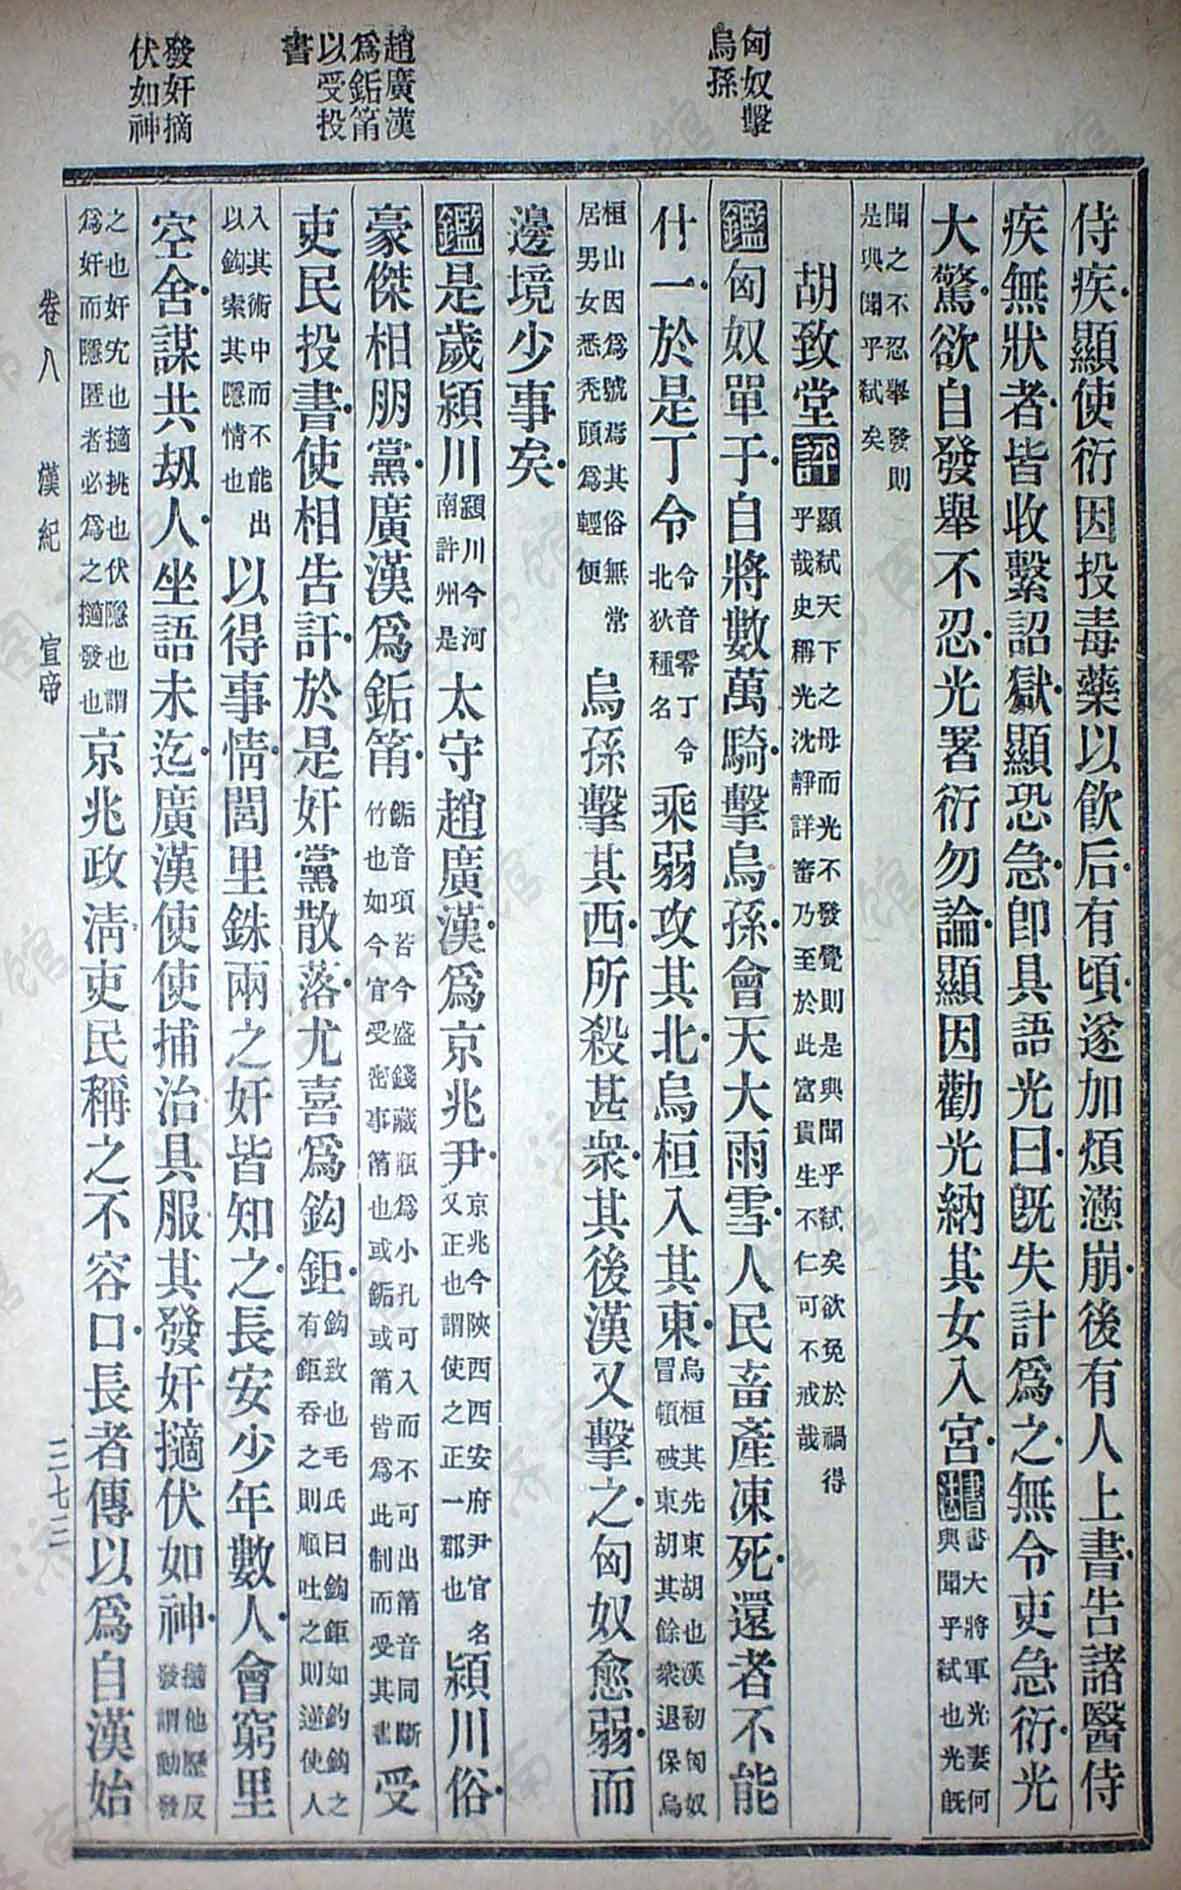 匈奴擊
烏孫
趙廣漢
爲鉐筩
以受投
書
發奸摘
伏如神
侍疾顯使衍因投毒藥以飲后有頃遂加煩懣崩後有人上書告諸醫侍
疾無狀者皆收繫詔獄顯恐急卽具語光曰旣失計爲之無令吏急衍光
大驚欲自發舉不忍光署衍勿論顯因勸光納其女入宮書法書大將軍光妻何與聞乎弒也光旣
聞之不忍舉發則是與聞乎弒矣
胡致堂評顯弒天下之母而光不發覺則是與聞乎弒矣欲免於禍得乎哉史稱光沈靜詳審乃至於此富貴生不仁可不戒哉
鑑匈奴單于自將數萬騎擊烏孫會天大雨雪人民畜產凍死還者不能
什一於是丁令令音零丁令北狄種名乘弱攻其北烏桓入其東烏桓其先東胡也漢初匈奴冒頓破東胡其餘衆退保烏
桓山因爲號焉其俗無常居男女悉禿頭爲輕便烏孫擊其西所殺甚衆其後漢又擊之匈奴愈弱而
邊境少事矣
鑑是歲潁川潁川今河南許州是太守趙廣漢爲京兆尹京兆今陝西西安府尹官名又正也謂使之正一郡也潁川俗
豪傑相朋黨廣漢爲鉐筩鉐音項若今盛錢藏瓶爲小孔可入而不可出筩音同斷竹也如今官受密事筩也或鉐或筩皆爲此制而受其書受
吏民投書使相告訐於是奸黨散落尤喜爲鈎鉅鈎致也毛氏曰鈎鉅如釣鈎之有鉅吞之則順吐之則逆使人
入其術中而不能出以鈎索其隱情也以得事情閭里銖兩之奸皆知之長安少年數人會窮里
空舍謀共刼人坐語未迄廣漢使使捕治具服其發奸擿伏如神擿他歷反發謂動發
之也奸宄也擿挑也伏隱也謂爲奸而隱匿者必爲之擿發也京兆政淸吏民稱之不容口長者傳以爲自漢始
卷八 漢紀 宣帝 三七三